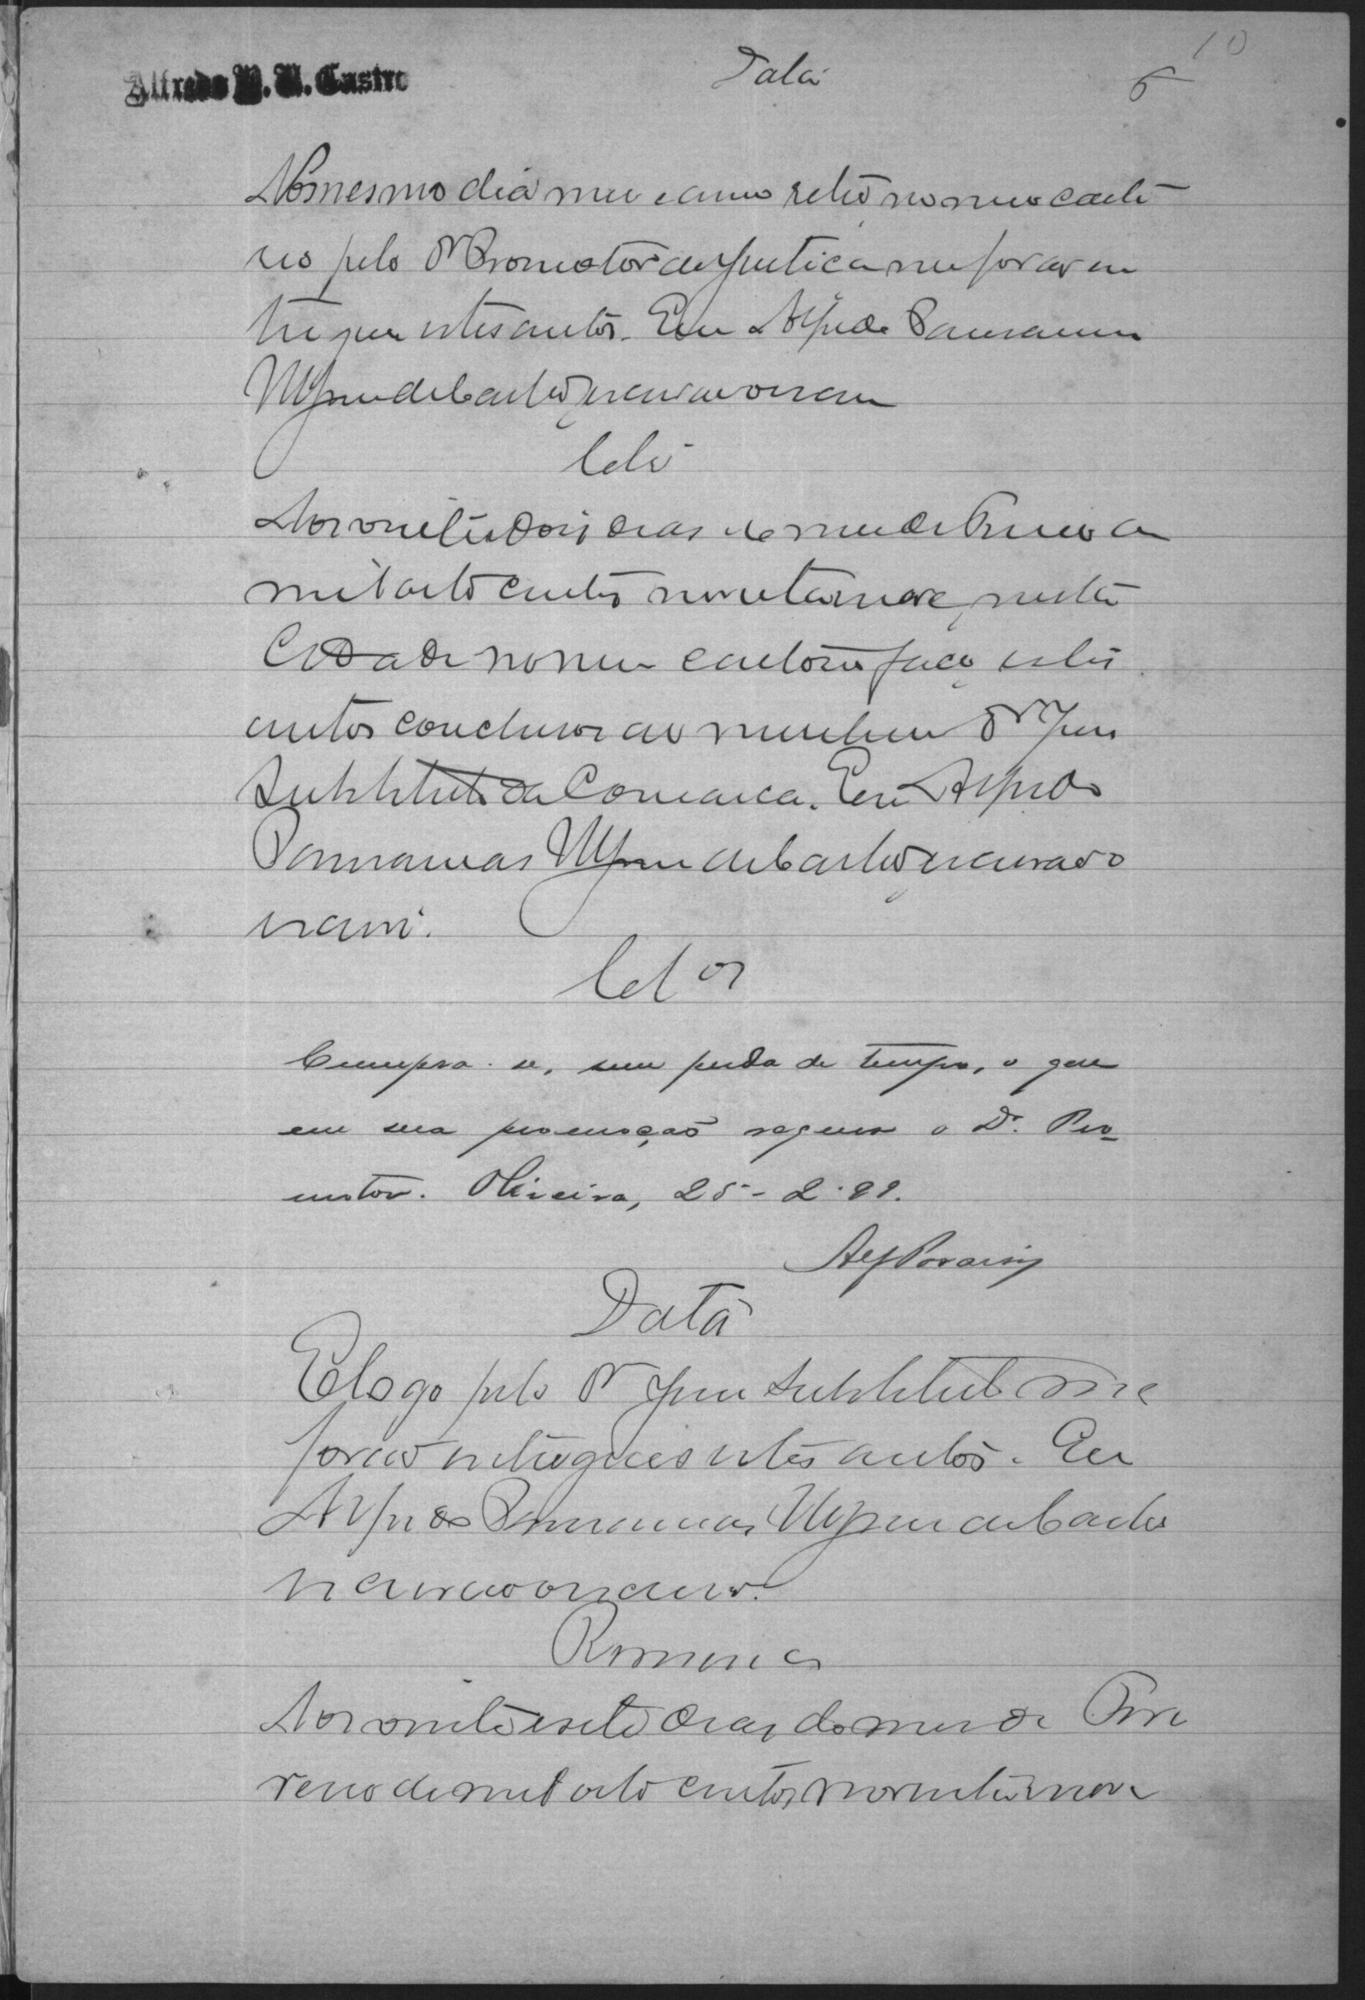 10
Alfredo P. U. Castro
Data
6
No mesmo dia mez e anno retro no meu carto
rio pelo Dr Promotor de Justiça me foram en
tregues estes autos. Eu Alfredo
de Castro escrivão o escrevi
Cls
Aos vinte e dois dias do mez de Fevereiro de
mil oito centos noventa e nove, nesta
Cidade no meu cartorio faço estes
autos conclusos ao meritissimo Dr Juiz
Substituto da Comarca. Eu Alfredo
de Castro escrivão o
escrevi.
Clos
Cumpra-se, sem perda de tempo, o que
em sua promoção requer o Dr. Pro-
motor. Oliveira, 25-2-99.
Data
E logo pelo Dr Juiz Substituto me
forão entregues estes autos. Eu
Alfredo de Castro
escrivão o escrevi.
Remessa
Aos vinte e sete dias do mez de Feve
reiro de mil oito centos noventa e nove